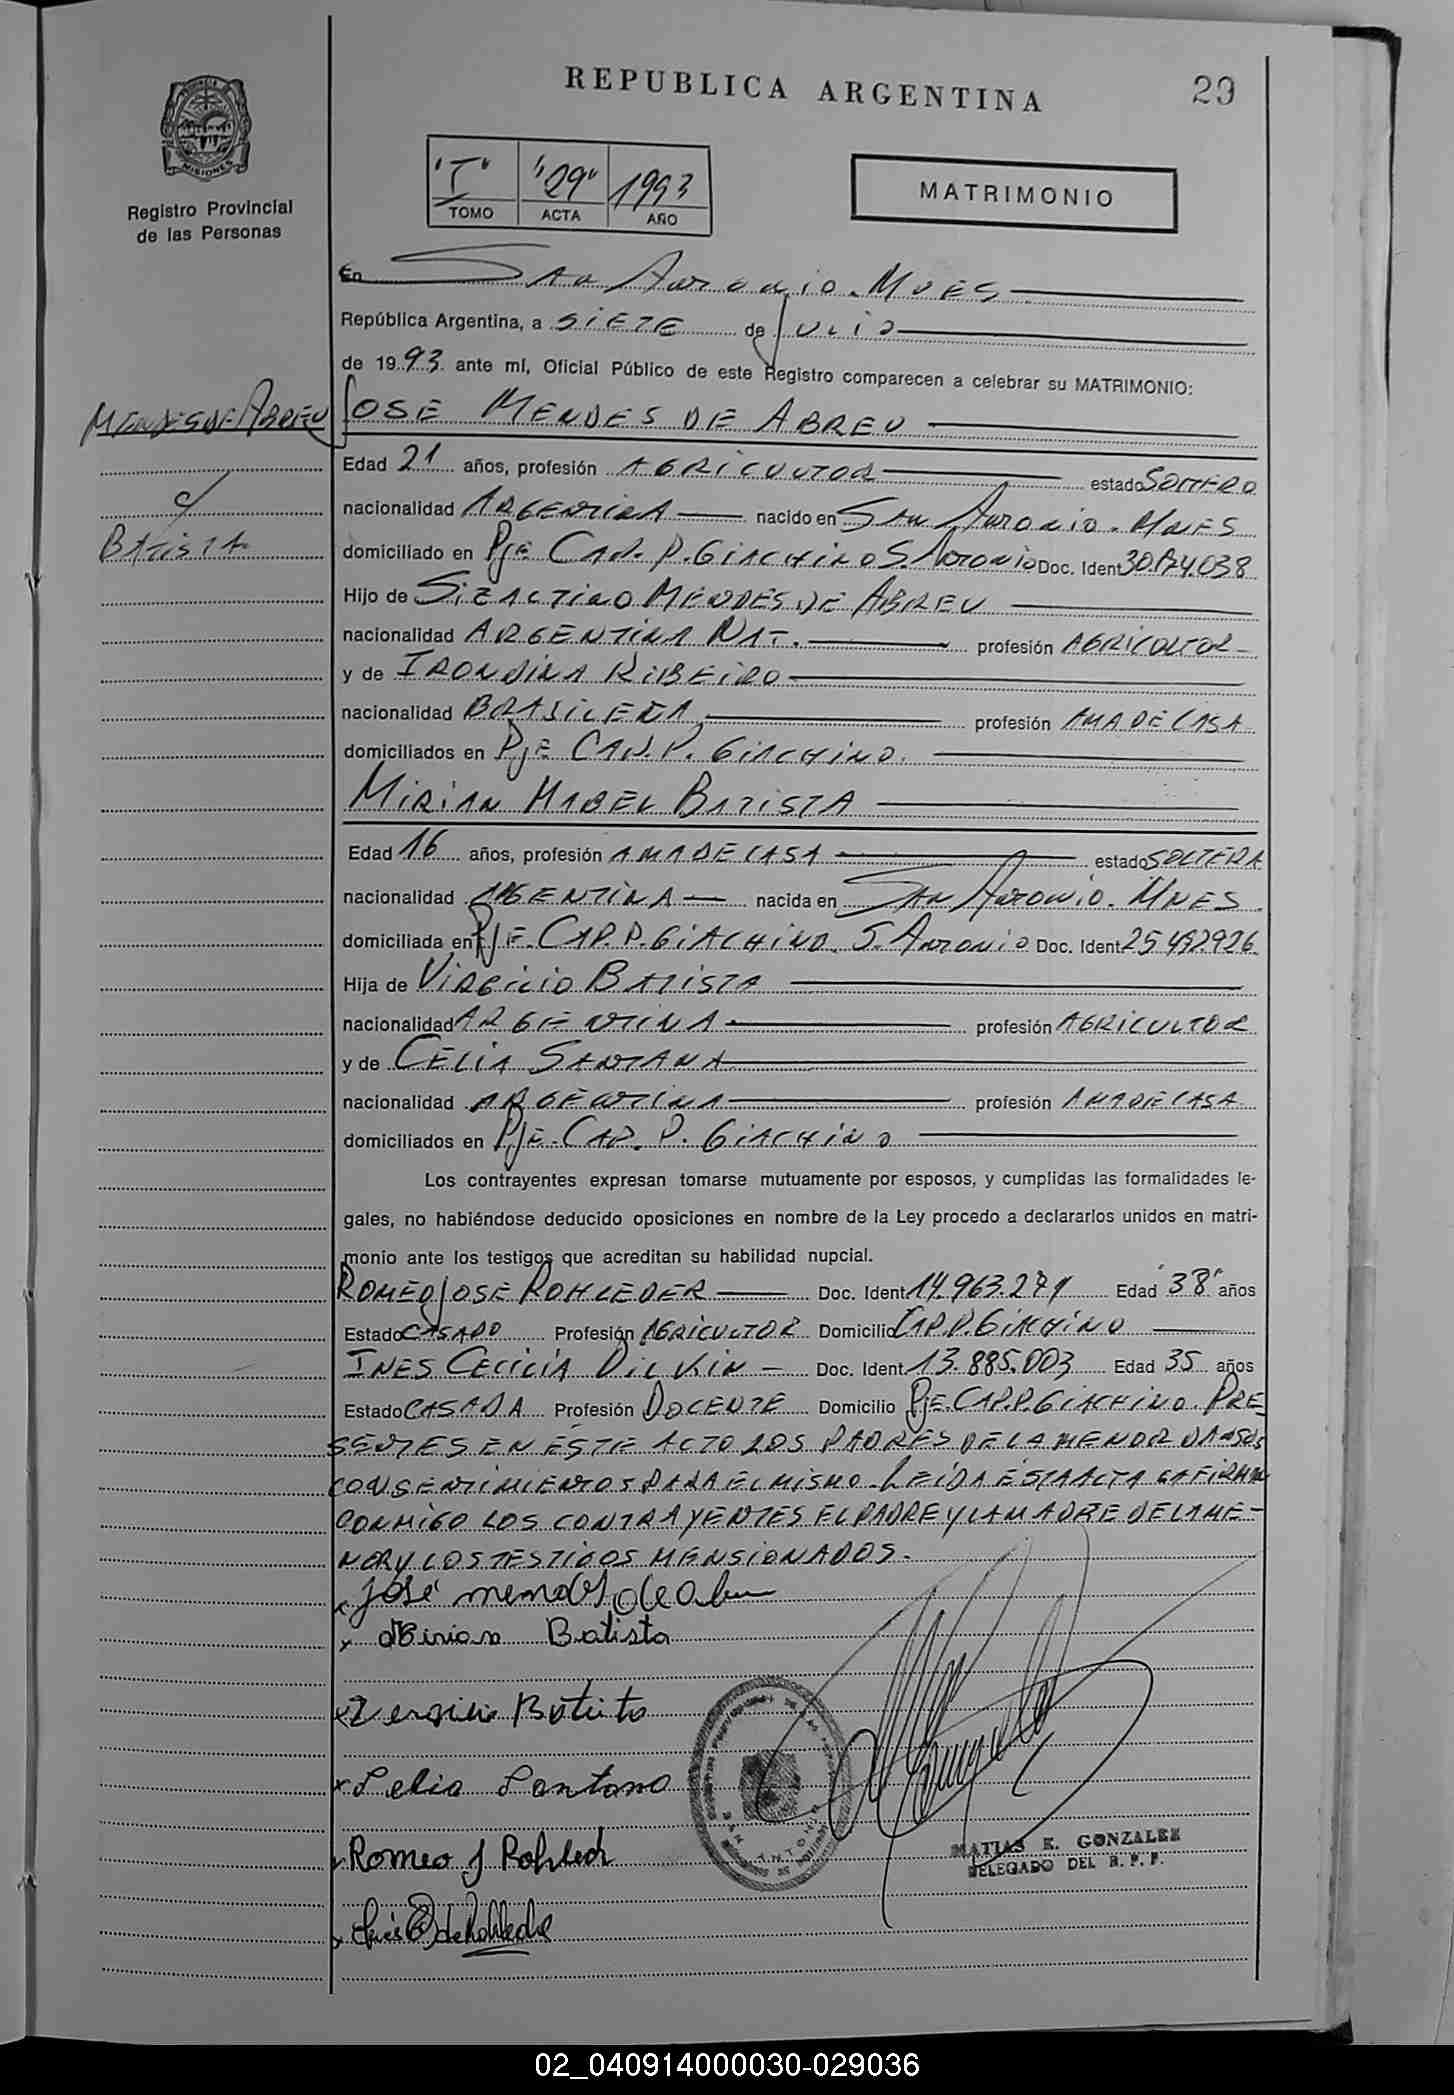 REPUBLICA ARGENTINA
29
PROVINCIA
MISIONES
Registro Provincial
de las Personas
"I" "29" 1993
TOMO ACTA AÑO
MATRIMONIO
En San Antonio. Mnes
República Argentina, a SIETE de Julio
de 1993 ante mí, Oficial Público de este Registro comparecen a celebrar su MATRIMONIO:
MENDES DE ABREU
c/
BATISTA
JOSE MENDES DE ABREU
Edad 21 años, profesión AGRICULTOR estado SOLTERO
nacionalidad ARGENTINA nacido en SAN ANTONIO. MNES
domiciliado en Pje CAP. P. GIACHINO S. ANTONIO Doc. Ident
Hijo de MENDES DE ABREU
nacionalidad ARGENTINA NAT. profesión AGRICULTOR
y de IRONDINA RIBEIRO
nacionalidad BRASILEÑA profesión AMA DE CASA
domiciliados en Pje CAP. P. GIACHINO.
MIRIAN MABEL BATISTA
Edad 16 años, profesión AMA DE CASA estado SOLTERA
nacionalidad ARGENTINA nacida en SAN ANTONIO. MNES.
domiciliada en PJE. CAP. P. GIACHINO. S. ANTONIO Doc. Ident
Hija de VIRGILIO BATISTA
nacionalidad ARGENTINA profesión AGRICULTOR
y de CELIA SANTANA
nacionalidad ARGENTINA profesión AMA DE CASA
domiciliados en PJE. CAP. P. GIACHINO
Los contrayentes expresan tomarse mutuamente por esposos, y cumplidas las formalidades le-
gales, no habiéndose deducido oposiciones en nombre de la Ley procedo a declararlos unidos en matri-
monio ante los testigos que acreditan su habilidad nupcial.
ROMEO JOSE ROHLEDER Doc. Ident 14.963.271 Edad 38 años
Estado CASADO Profesión AGRICULTOR Domicilio CAP. P. GIACHINO
INES CECILIA DILKIN Doc. Ident 13.885.003 Edad 35 años
Estado CASADA Profesión DOCENTE Domicilio PJE. CAP. P. GIACHINO. PRE
SENTES EN ESTE ACTO LOS PADRES DE LA MENOR DAN SUS
CONSENTIMIENTOS PARA EL MISMO. LEIDA ESTA ACTA LA FIRMAN
CONMIGO LOS CONTRAYENTES EL PADRE Y LA MADRE DE LA ME-
NOR Y LOS TESTIGOS MENSIONADOS.
x José mendes de Abreu
x Mirian Batista
x Vergilio Batista
x Selia Santana
x Romeo J Rohleder
x Inés D de Rohleder
MATIAS E. GONZALEZ
DELEGADO DEL R. P. P.
02_040914000030-029036